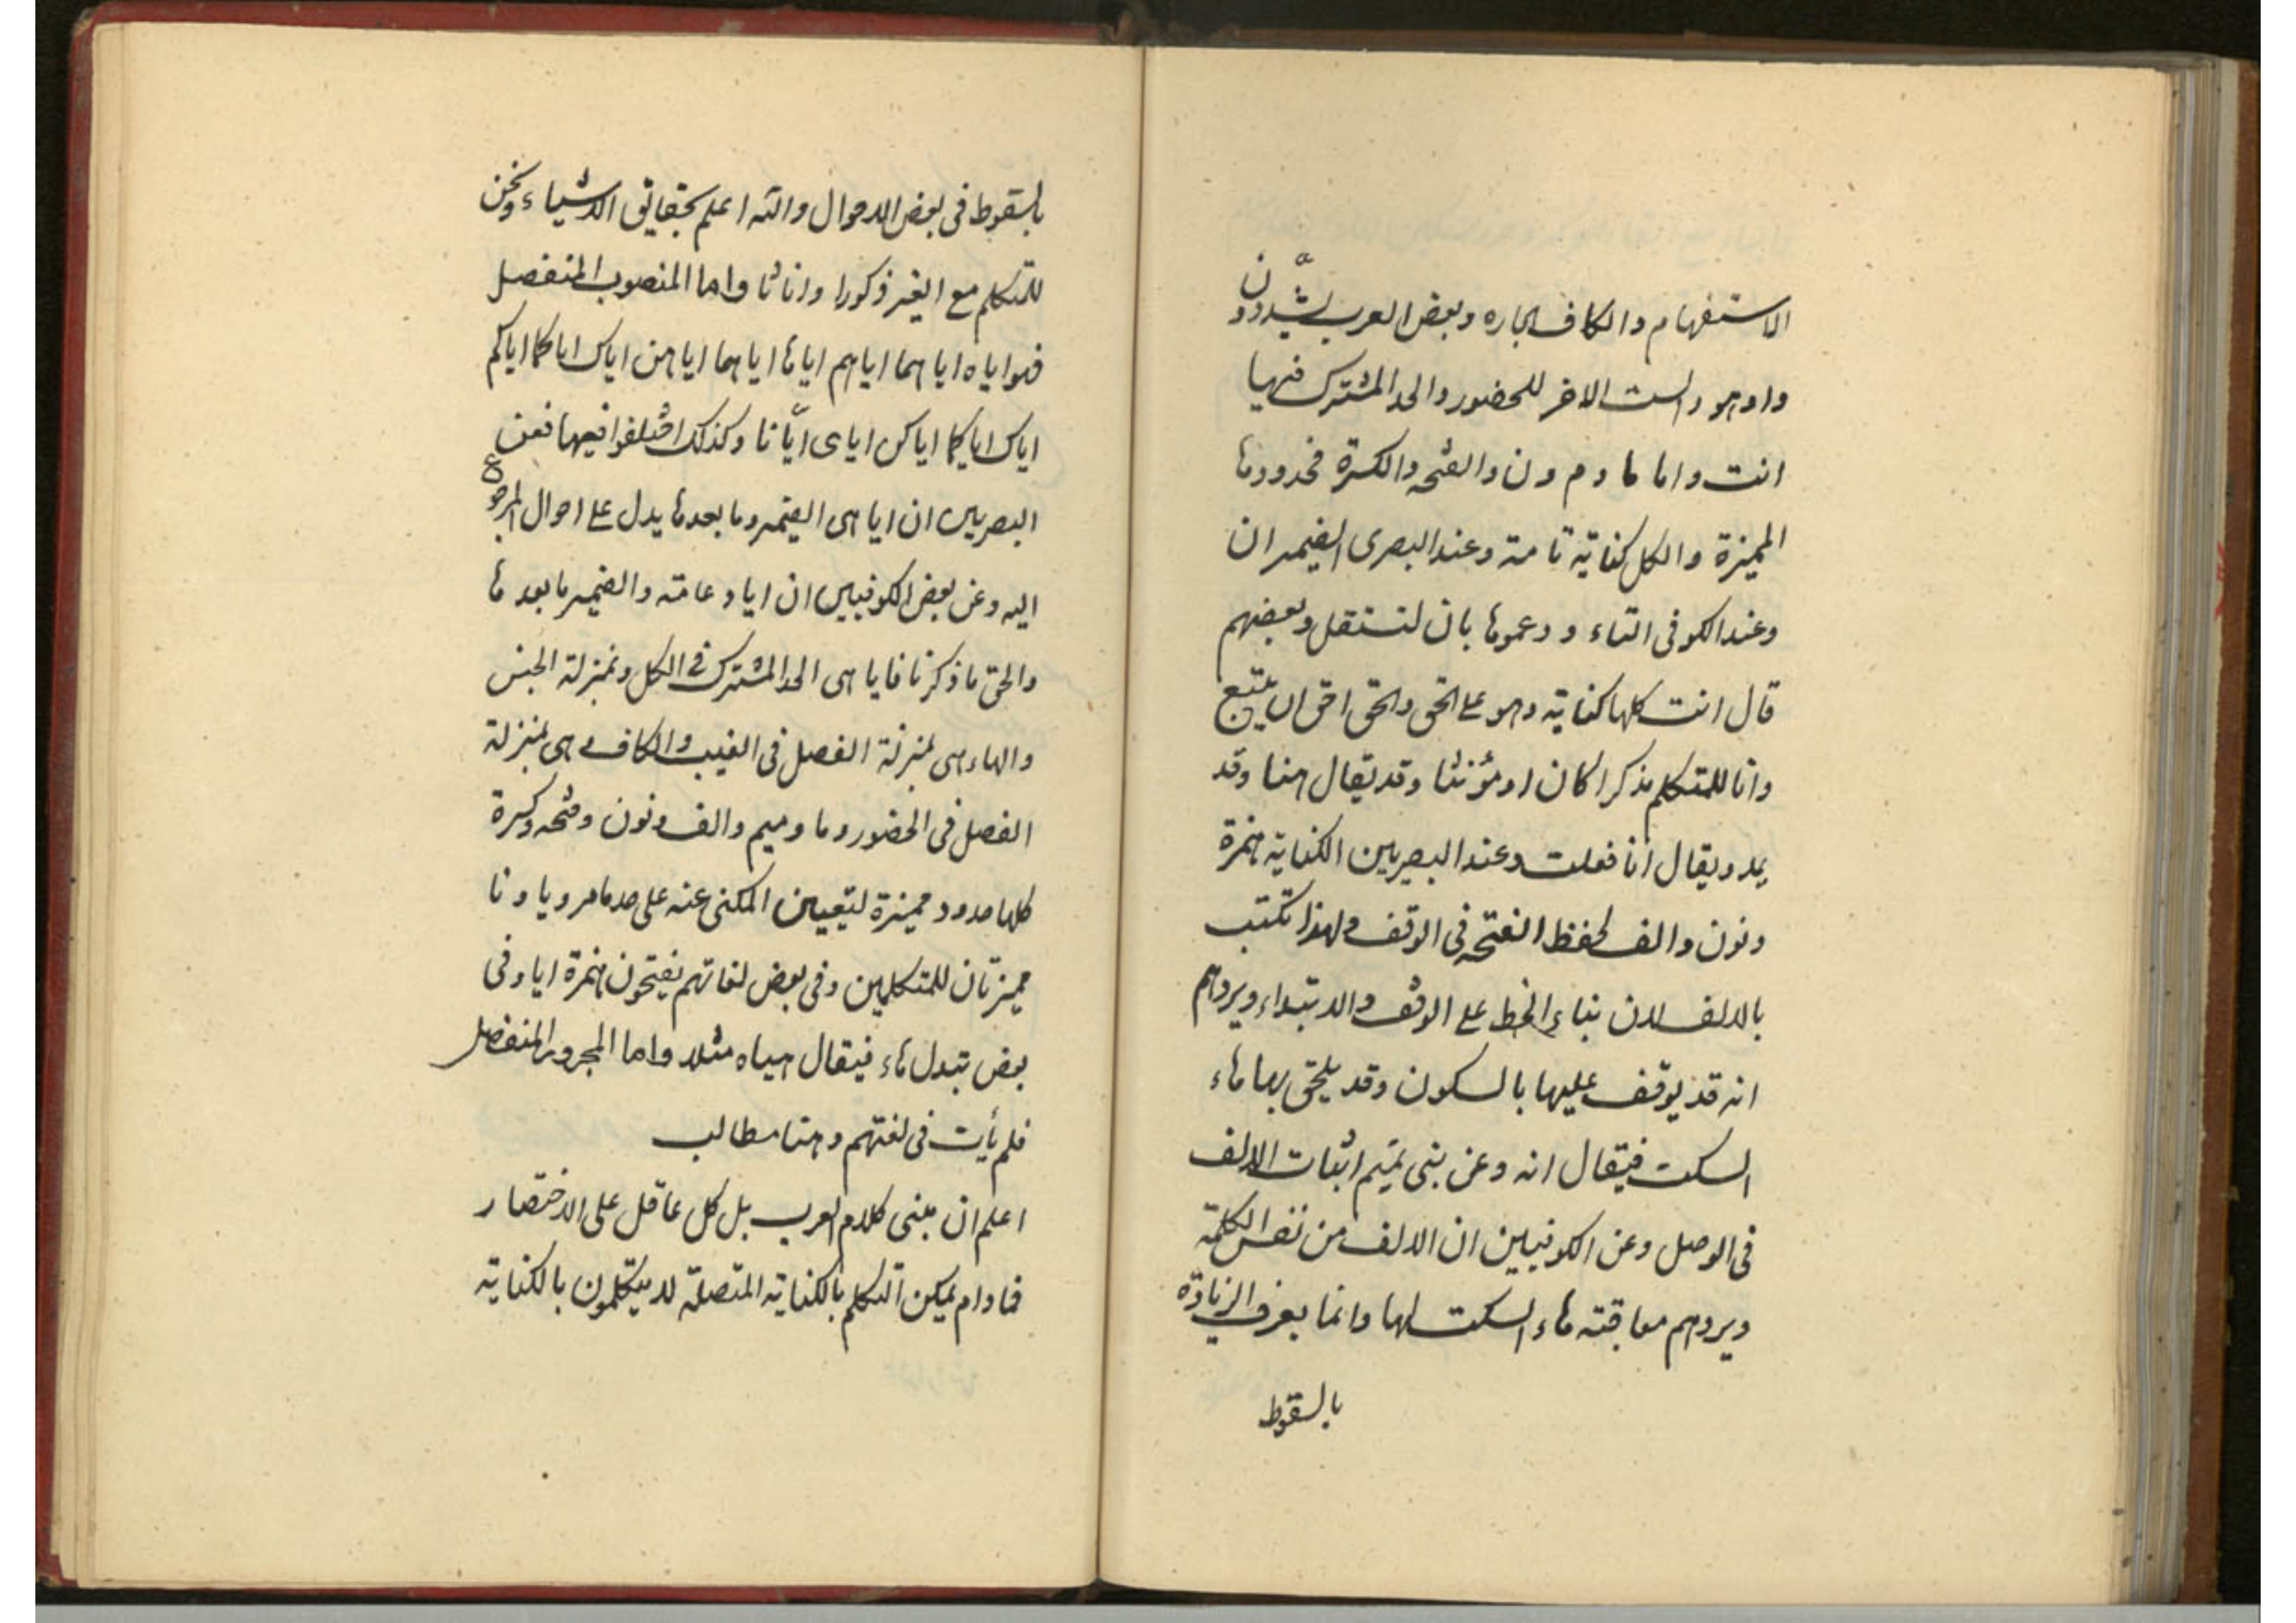 الاستفهام والكاف الجاره وبعض العرب يشددون
واو هو والست الاخر للحضور والحد المشترك فيها
انت واما ما وم ون والفتحه والكسرة فحدودها
المميزة والكل كناية تامة وعند البصرى الضمير ان
وعند الكوفى التاء و دعموها بان لتستقل وبعضهم
قال انت كلها كناية وهو على الحق والحق احق ان يتبع
وانا للمتكلم مذكرا كان او مؤنثا وقد يقال هنا وقد
يمد ويقال آنا فعلت وعند البصريين الكناية همزة
ونون والف لحفظ الفتحه فى الوقف ولهذا تكتب
بالالف لان بناء الخط على الوقف والابتداء ويردهم
انه قد يوقف عليها بالسكون وقد يلحق بها هاء
السكت فيقال انه وعن بنى تميم اثبات الالف
فى الوصل وعن الكوفيين ان الالف من نفس الكلمة
ويردهم معاقبة هاء السكت لها وانما يعرف الزيادة
بالسقوط
بالسقوط فى بعض الاحوال والله اعلم بحقايق الاشياء ونحن
للمتكلم مع الغير ذكورا واناثا واما المنصوب المنفصل
فهو اياه اياهما اياهم اياها اياهما اياهن اياك اياكما اياكم
اياك اياكما اياكن اياى ايّانا وكذلك اختلفوا فيها فعن
البصريين ان ايا هى الضمير وما بعدها يدل على احوال المرجوع
اليه وعن بعض الكوفيين ان ايا دعامة والضمير ما بعدها
والحق ما ذكرنا فايا هى الحد المشترك فى الكل وبمنزلة الجنس
والهاء هى بمنزلة الفصل فى الغيب والكاف هى بمنزلة
الفصل فى الحضور وما وميم والف ونون وفتحه وكسرة
كلها حدود مميزة لتعيين المكنى عنه على حد ما مر ويا ونا
مميزتان للمتكلمين وفى بعض لغاتهم يفتحون همزة ايا وفى
بعض تبدل هاء فيقال هياه مثلا واما المجرور المنفصل
فلم يأت فى لغتهم وهنا مطالب
اعلم ان مبنى كلام العرب بل كل عاقل على الاختصار
فمادام يمكن التكلم بالكناية المتصلة لا يتكلمون بالكناية